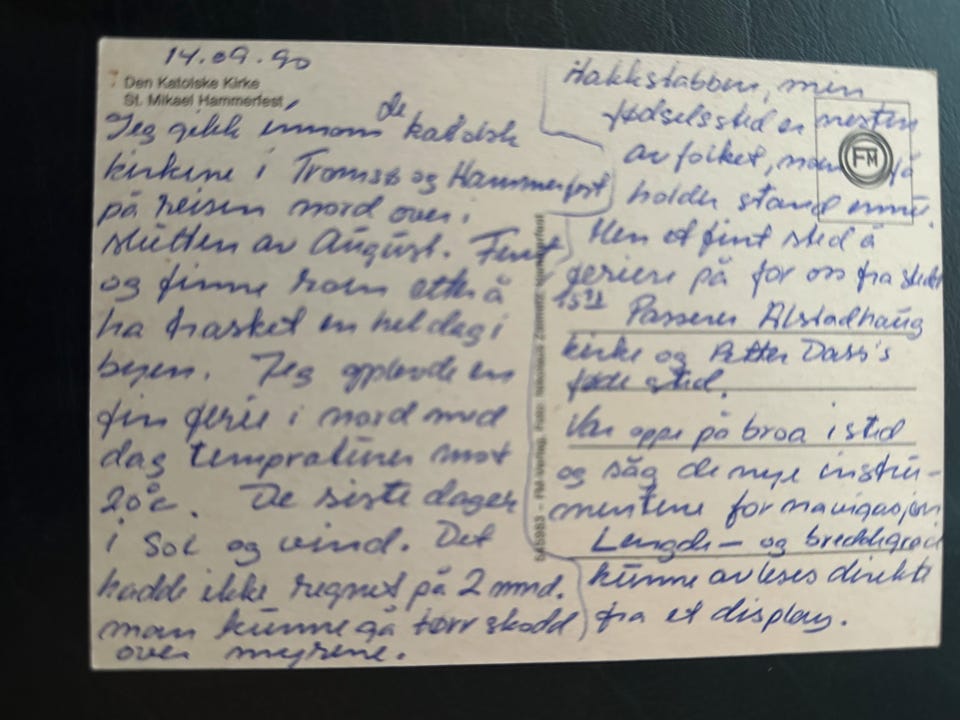 14.09.90
Den Katolske Kirke
St. Mikael Hammerfest
Jeg gikk innom de katolsk
kirkene i Tromsø og Hammerfest
på reisen nord over i
slutten av August. Fint
og finne roen etter å
ha trasket en hel dag i
byen. Jeg opplevde en
fin ferie i nord med
dag tempratúrer mot
20°c. De siste dager
i Sol og vind. Det
hadde ikke regnet på 2 mnd.
man kunne gå tørrskodd
over myrene.
545983 - FM-Verlag. Foto:
Hakkstabben, min
fødselssted er nesten
av folket, noen få
holder stand ennu.
Men et fint sted å
feriere på for oss fra stedet
Passerer Alstadhaug
kirke og Petter Dass's
føde sted.
Var oppe på broa i sted
og såg de nye instru-
mentene for navigasjon
Lengde- og breddegrad
kunne avleses direkte
fra et display.
FM